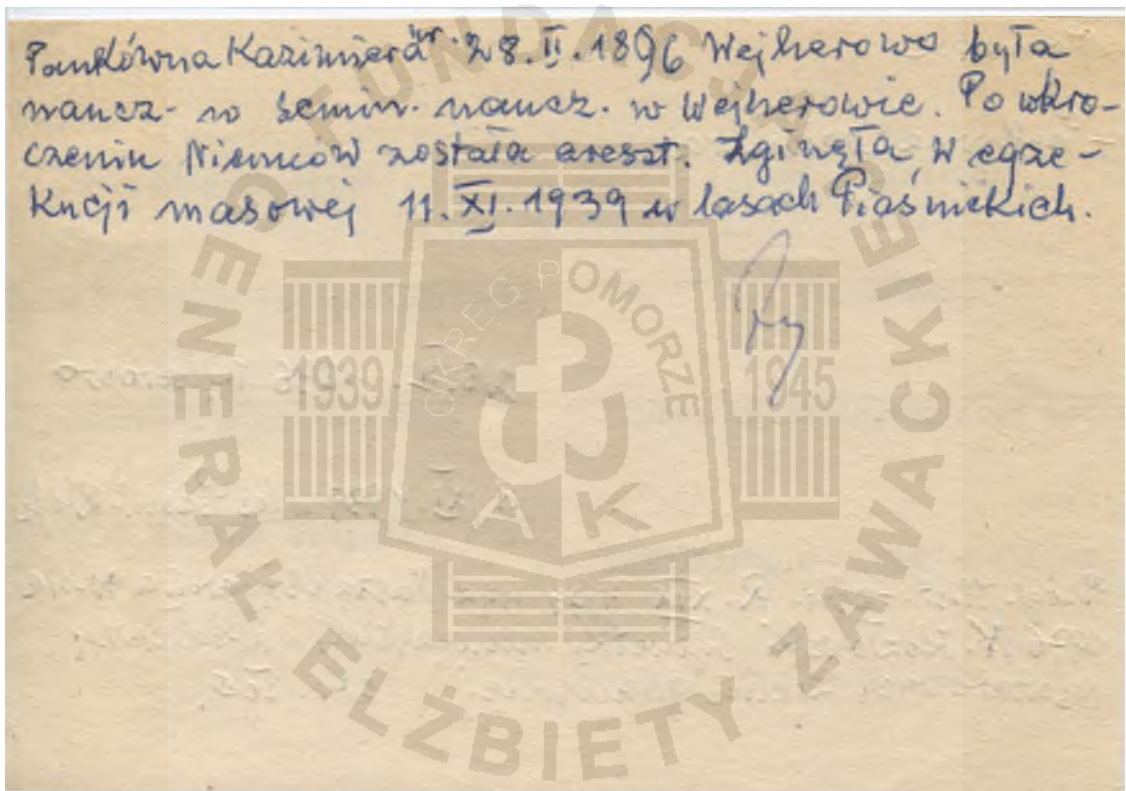 Pankówna Kazimiera ur. 28.II.1896 Wejherowo była
naucz. w semin. naucz. w Wejherowie. Po wkro-
czeniu Niemców została areszt. Zginęła w egze-
kucji masowej 11.XI.1939 w lasach Piaśnickich.
FUNDACJA
GENERAŁ ELŻBIETY ZAWACKIEJ
OKRĘG POMORZE
1939 1945
AK